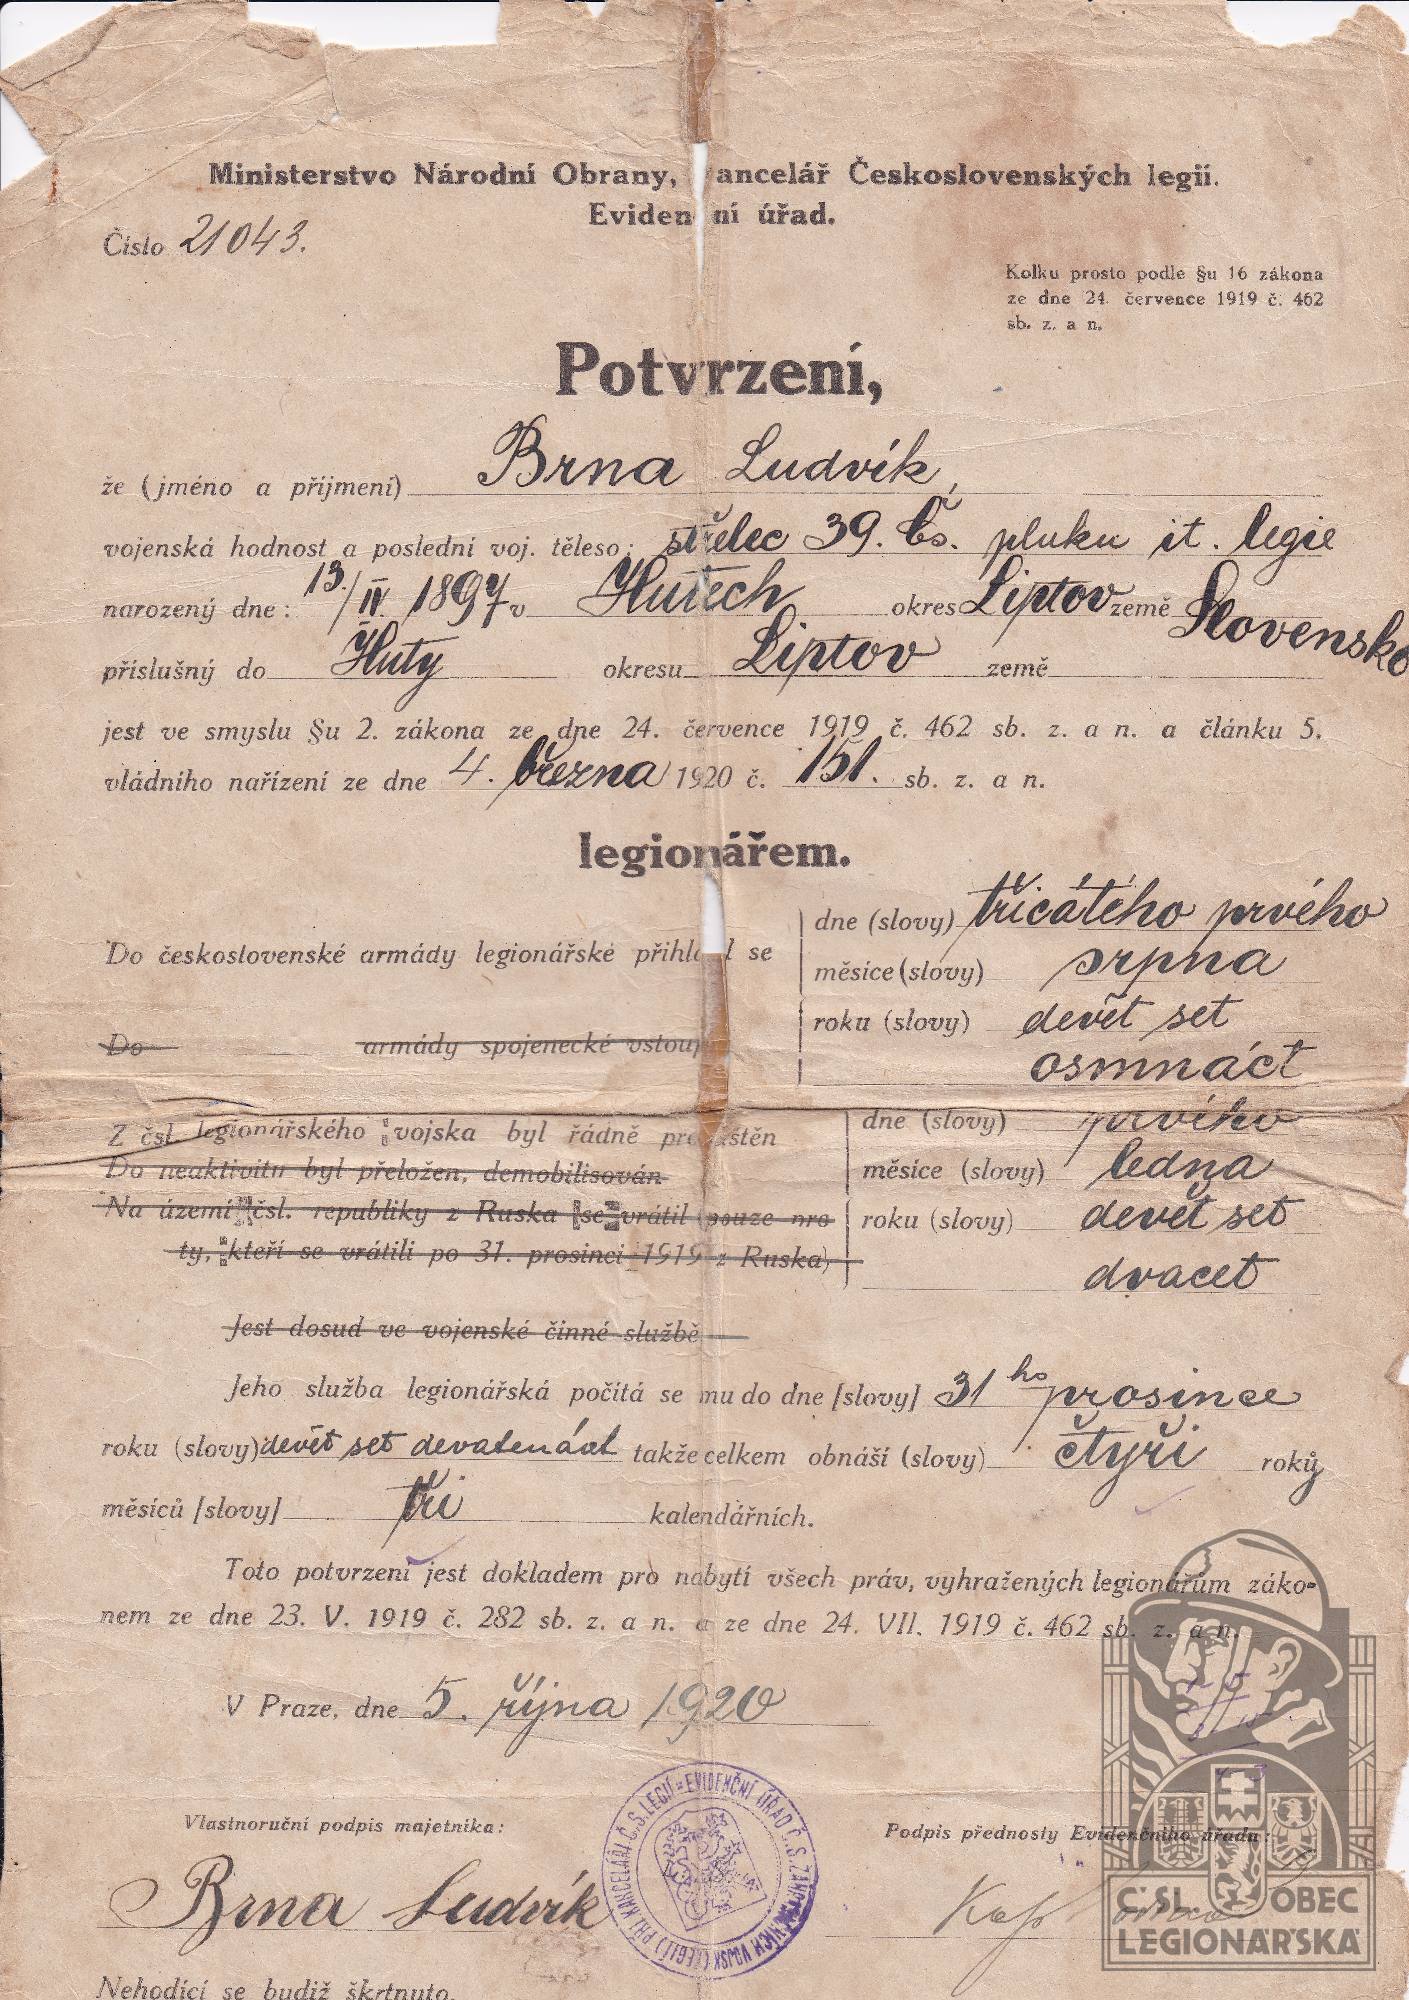 Ministerstvo Národní Obrany, Kancelář Československých legií.
Evidenční úřad.
Číslo 21043.
Kolku prosto podle §u 16 zákona
ze dne 24. července 1919 č. 462
sb. z. a n.
Potvrzení,
že (jméno a příjmení) Brna Ludvík,
vojenská hodnost a poslední voj. těleso: střelec 39. čs. pluku it. legie
narozený dne: 13./IV. 1897 v Hutech okres Liptov země Slovensko
příslušný do Huty okresu Liptov země
jest ve smyslu §u 2. zákona ze dne 24. července 1919 č. 462 sb. z. a n. a článku 5.
vládního nařízení ze dne 4. března 1920 č. 151. sb. z. a n.
legionářem.
Do československé armády legionářské přihlásil se
dne (slovy) třicátého prvého
měsíce (slovy) srpna
roku (slovy) devět set
osmnáct
Do armády spojenecké vstoupil
Z čsl. legionářského vojska byl řádně propuštěn
Do neaktivity byl přeložen, demobilisován
Na území čsl. republiky z Ruska se vrátil (pouze pro
ty, kteří se vrátili po 31. prosinci 1919 z Ruska)
dne (slovy) prvího
měsíce (slovy) ledna
roku (slovy) devět set
dvacet
Jest dosud ve vojenské činné službě
Jeho služba legionářská počítá se mu do dne [slovy] 31ho prosince
roku (slovy) devět set devatenáct takže celkem obnáší (slovy) čtyři roků
měsíců [slovy] tři kalendářních.
Toto potvrzení jest dokladem pro nabytí všech práv, vyhražených legionářům záko-
nem ze dne 23. V. 1919 č. 282 sb. z. a n. a ze dne 24. VII. 1919 č. 462 sb. z. a n.
V Praze, dne 5. října 1920
Vlastnoruční podpis majetníka:
Podpis přednosty Evidenčního úřadu:
Brna Ludvík
EVIDENČNÍ ÚŘAD Č.S. ZAHRANIČNÍCH VOJSK (LEGIÍ) PŘI KANCELÁŘI Č.S. LEGIÍ
Č SL. OBEC
LEGIONÁŘSKÁ
Nehodící se budiž škrtnuto.